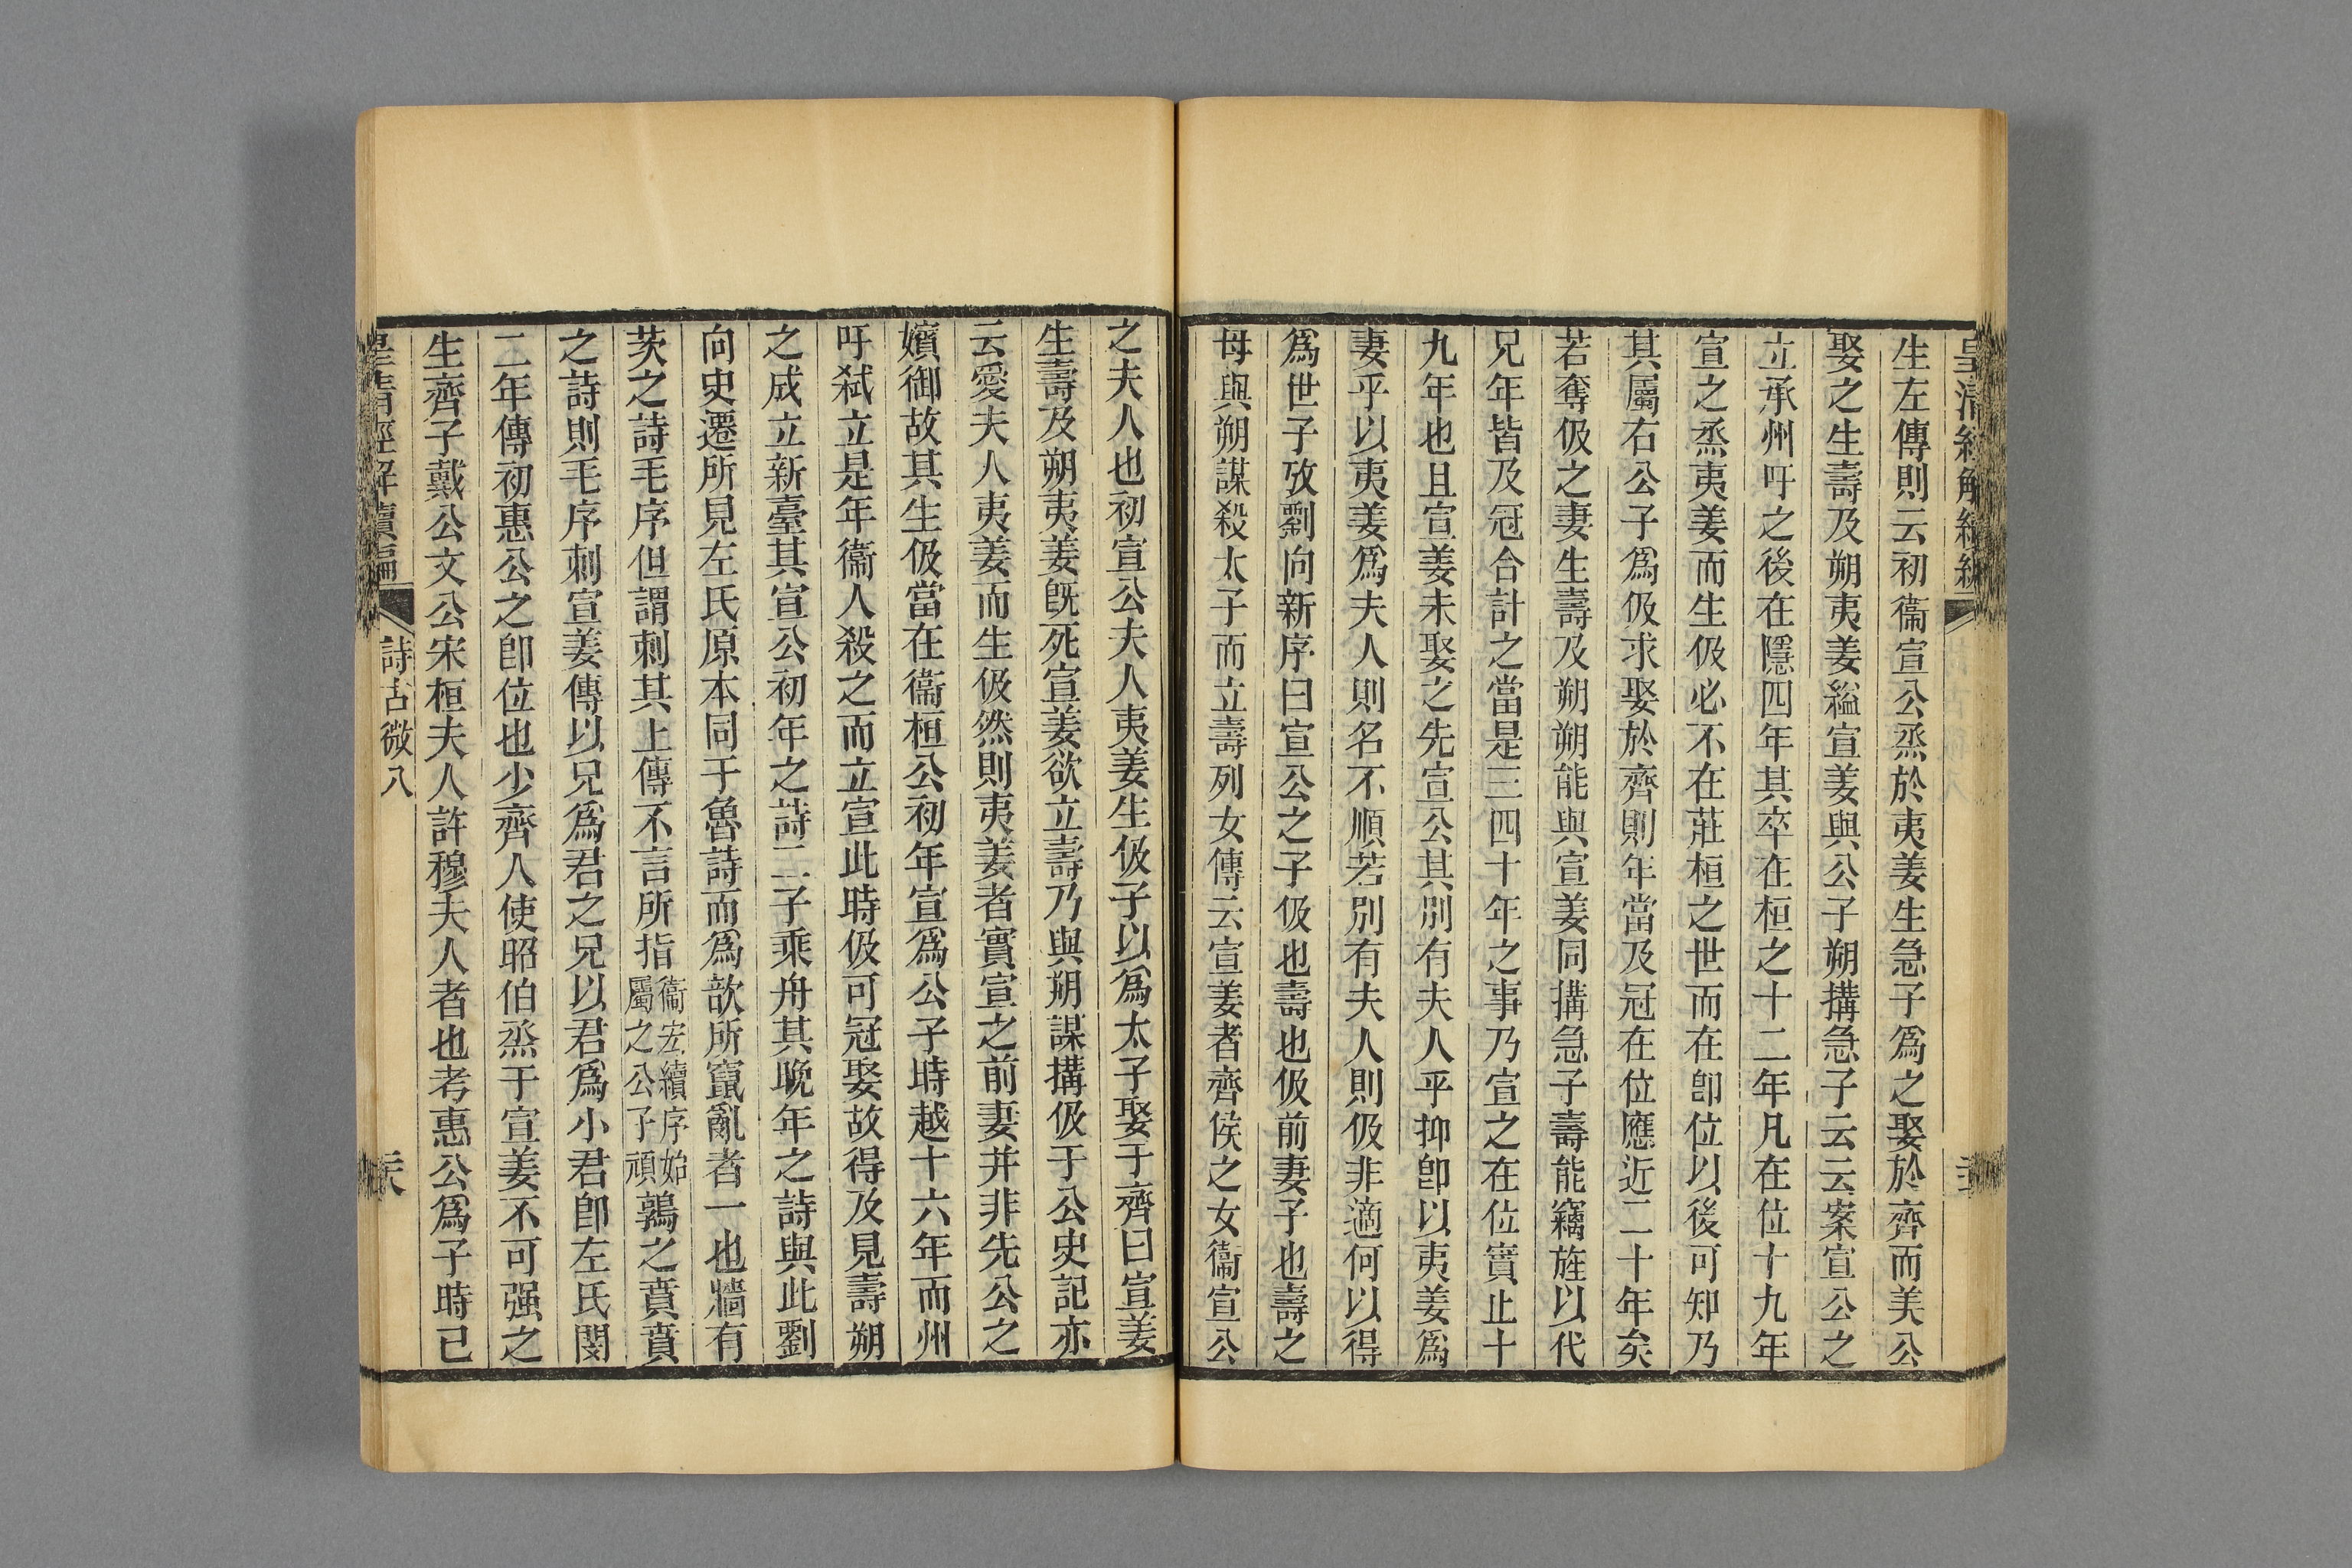 皇清經解續編
生左傳則云初衞宣公烝於夷姜生急子爲之娶於齊而美公
娶之生壽及朔夷姜縊宣姜與公子朔搆急子云云案宣公之
立承州吁之後在隱四年其卒在桓之十二年凡在位十九年
宣之烝夷姜而生伋必不在莊桓之世而在卽位以後可知乃
其屬右公子爲伋求娶於齊則年當及冠在位應近二十年矣
若奪伋之妻生壽及朔朔能與宣姜同搆急子壽能竊旌以代
兄年皆及冠合計之當是三四十年之事乃宣之在位實止十
九年也且宣姜未娶之先宣公其別有夫人乎抑卽以夷姜爲
妻乎以夷姜爲夫人則名不順若別有夫人則伋非適何以得
爲世子攷劉向新序曰宣公之子伋也壽也伋前妻子也壽之
母與朔謀殺太子而立壽列女傳云宣姜者齊侯之女衞宣公
之夫人也初宣公夫人夷姜生伋子以爲太子娶于齊曰宣姜
生壽及朔夷姜旣死宣姜欲立壽乃與朔謀搆伋于公史記亦
云愛夫人夷姜而生伋然則夷姜者實宣之前妻并非先公之
嬪御故其生伋當在衞桓公初年宣爲公子時越十六年而州
吁弑立是年衞人殺之而立宣此時伋可冠娶故得及見壽朔
之成立新臺其宣公初年之詩二子乘舟其晚年之詩與此劉
向史遷所見左氏原本同于魯詩而爲歆所竄亂者一也牆有
茨之詩毛序但謂刺其上傳不言所指衞宏續序始屬之公子頑鶉之賁賁
之詩則毛序刺宣姜傳以兄爲君之兄以君爲小君卽左氏閔
二年傳初惠公之卽位也少齊人使昭伯烝于宣姜不可强之
生齊子戴公文公宋桓夫人許穆夫人者也考惠公爲子時已
皇清經解續編
詩古微八